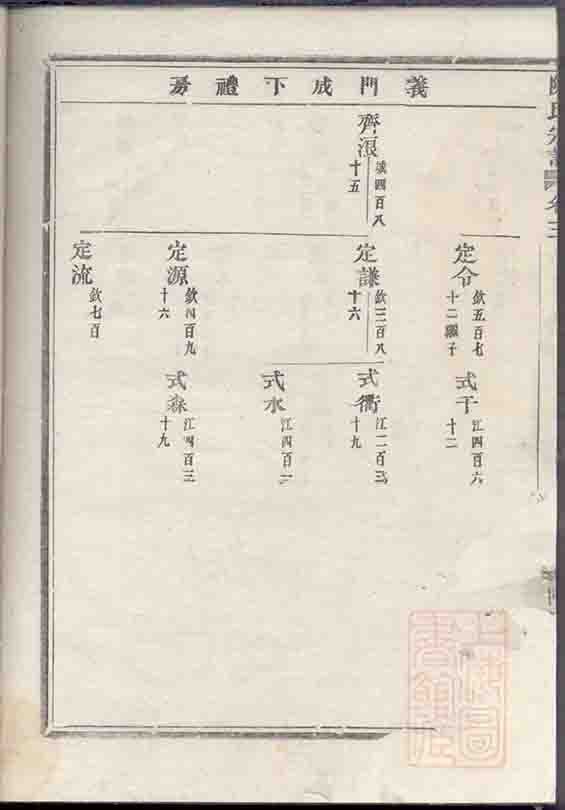 義門成下禮房
齊浪
欽四百八
十五
定令
欽五百七
十二繼子
定謙
欽三百八
十六
定源
欽四百九
十六
定流
欽七百
式干
江四百六
十二
式衢
江二百三
十九
式水
江四百二
式森
江四百三
十九
上海圖
書館藏